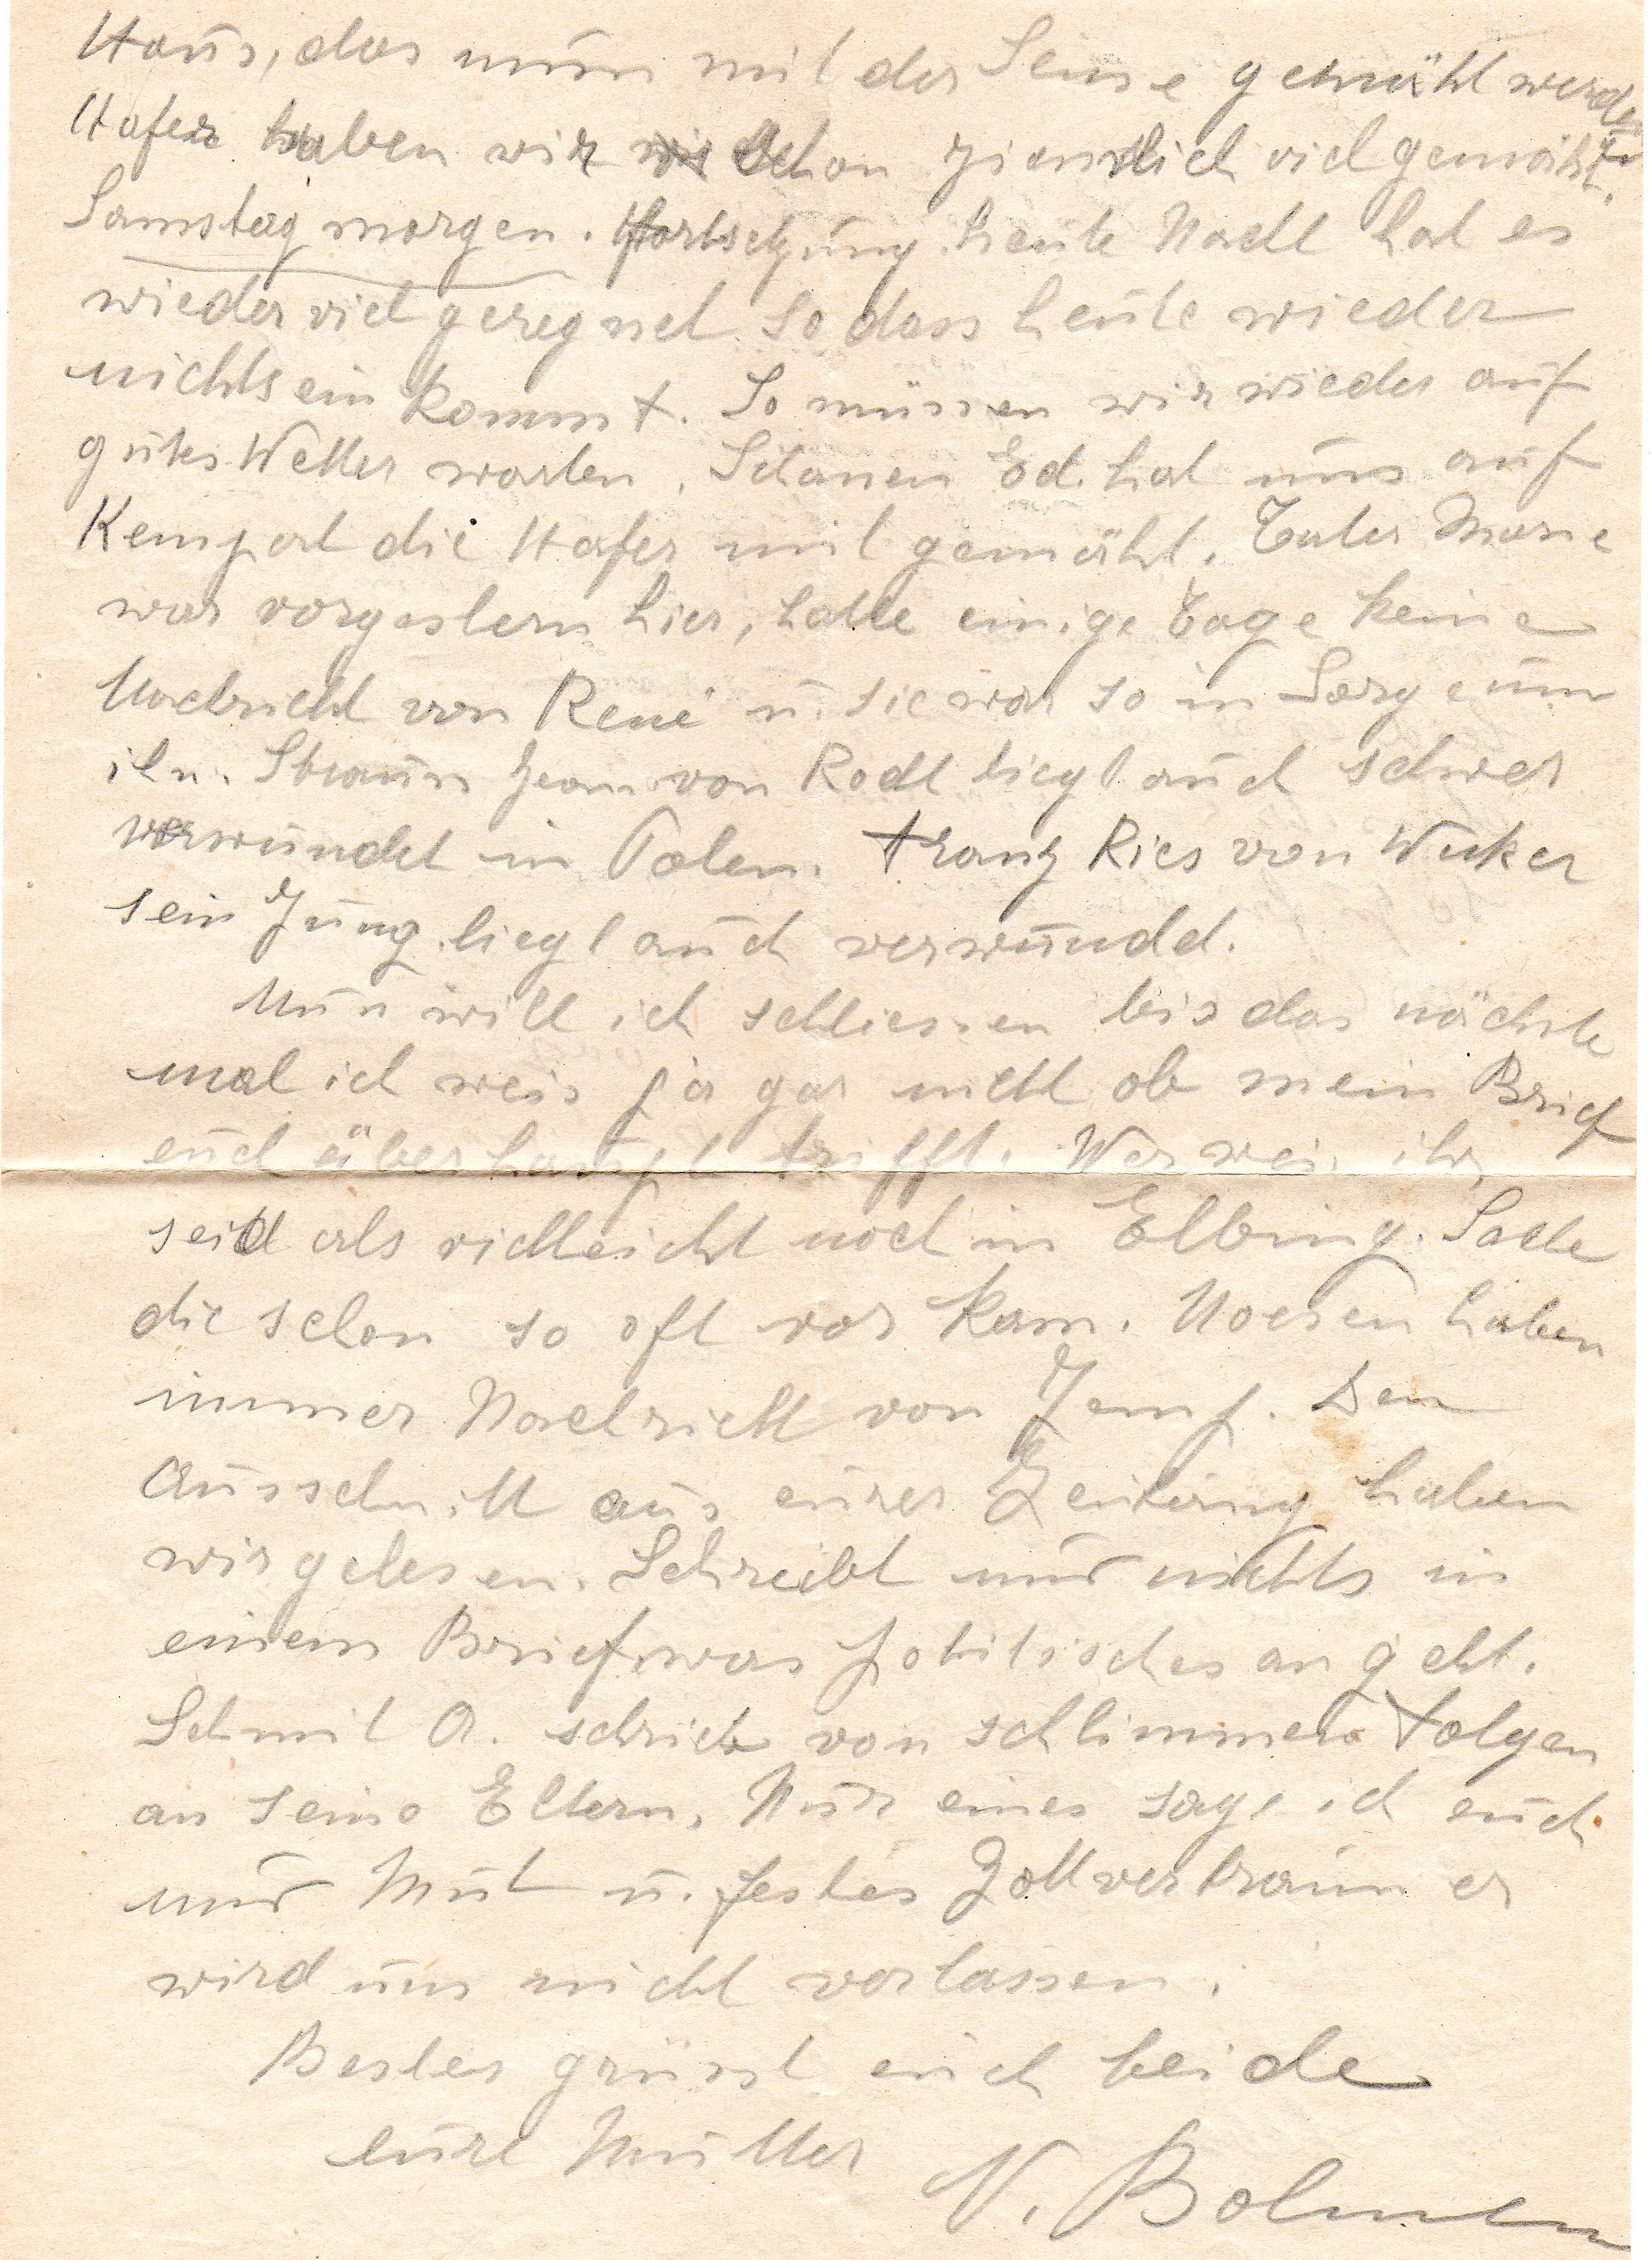 Haus, das muss mit der Sense gemäht werden
Hafer haben wir schon ziemlich viel gemäht.
Samstag morgen. Fortsetzung. heute Nacht hat es
wieder viel geregnet. So dass heute wieder
nichts ein kommt. So müssen wir wieder auf
gutes Wetter warten. Schanen Ed. hat uns auf
Kempat die Hafer mit gemäht. Marie
war vorgestern hier, hatte einige Tage keine
Nachricht von René u. sie war so in Sorge um
ihn. Straun Jean von Rodt liegt auch schwer
verwundet in Polen. Franz Ries von Wicker
sein Jung liegt auch verwundet.
Nun will ich schliessen bis das nächste
mal ich weis ja gar nicht ob mein Brief
euch überhaupt trifft. Wer weis ihr
seid als vielleicht noch in Elbing. Sache
die schon so oft vor kam. haben
immer Nachricht von Jemp. Den
Ausschnitt aus eurer Zeitung haben
wir gelesen. Schreibt nur nichts in
einem Brief was politisches an geht.
Schmit A. schrieb von schlimmen Folgen
an seine Eltern. Nur eines sage ich euch
nur Mut u. festes Gottvertraun er
wird uns nicht verlassen.
Bestes grüsst euch beide
eure Mutter N. Bohnen